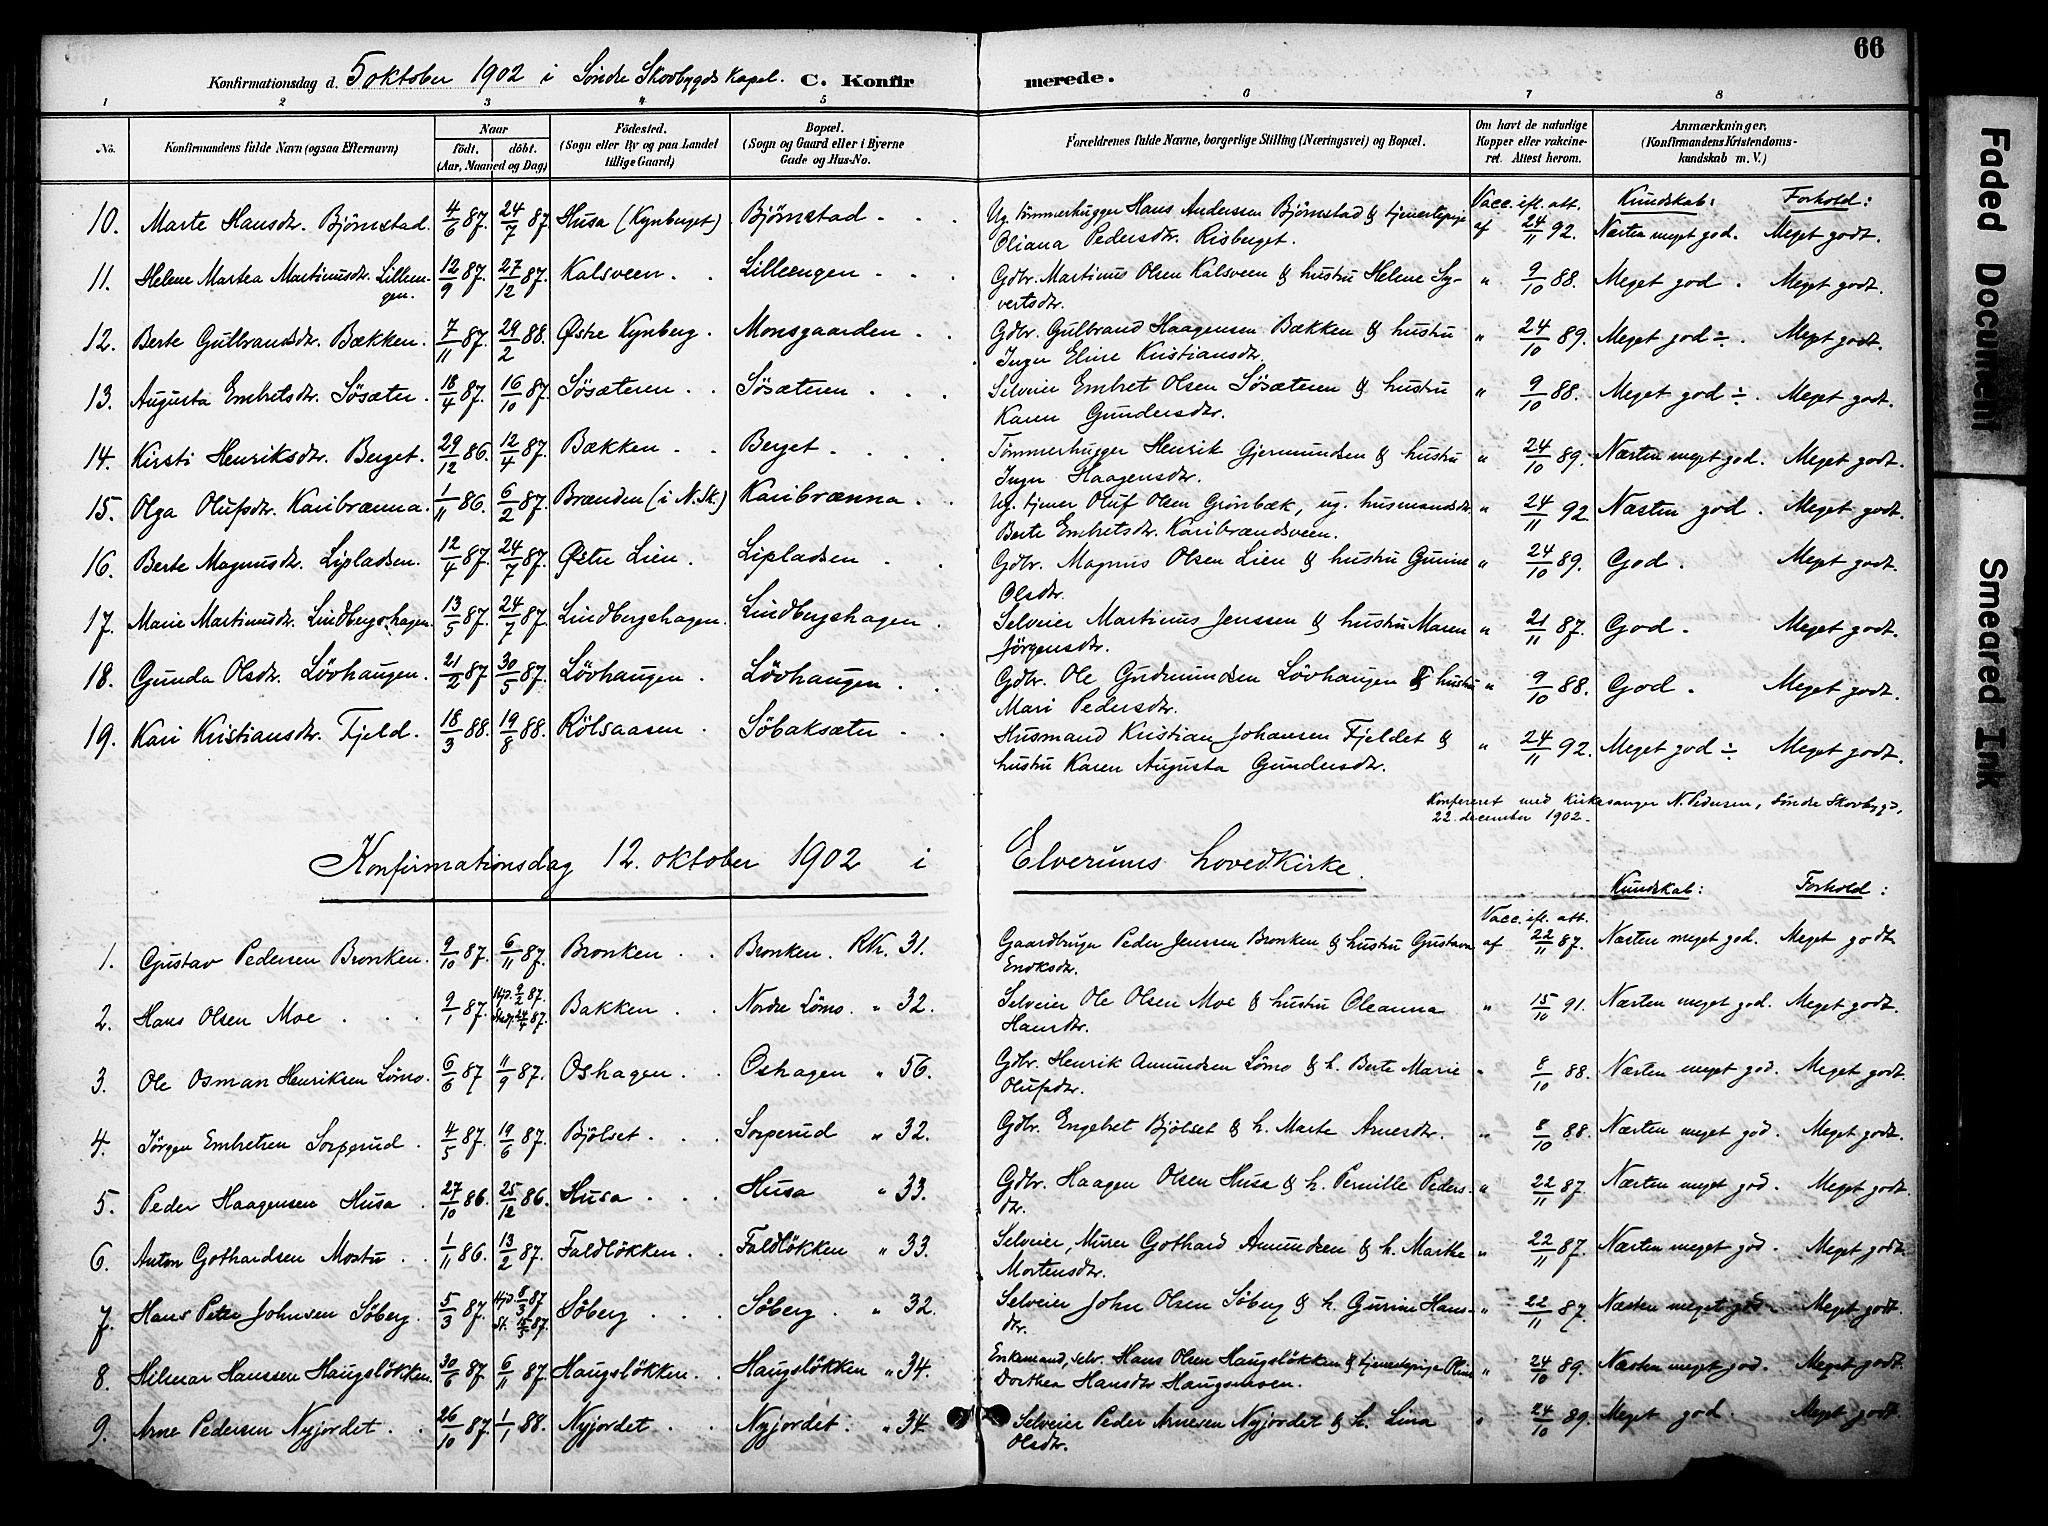 66
Konfirmationsdag d. 5 oktober 1902 i Søndre Skovbygds Kapel. C. Konfirmerede.
1 2 3 4 5 6 7 8
No. Konfirmandens fulde Navn (ogsaa Efternavn) Naar født. døbt. (Aar, Maaned og Dag) Födested. (Sogn eller By og paa Landet tillige Gaard) Bopæl. (Sogn og Gaard eller i Byerne Gade og Hus-No. Forældrenes fulde Navne, borgerlige Stilling (Næringsvei) og Bopæl. Om havt de naturlige Kopper eller vakcineret. Attest herom. Anmærkninger. (Konfirmandens Kristendomskundskab m. V.)
Vacc. ifl. att. Kundskab: Forhold:
10. Marte Hansdtr. Bjørnstad. 4/6 87. 24/7 87. Husa (Kynberget) Bjørnstad Ug. tømmerhugger Hans Andersen Bjørnstad & tjenestepige af 24/11 92. Næsten meget god. Meget godt.
Oliana Pedersdtr. Risberget.
11. Helene Martea Martinusdtr. Lilleengen. 12/9 87. 27/12 87. Kalsveen. Lilleengen Gdbr. Martinus Olsen Kalsveen & hustru Helene Sy- " 9/10 88. Meget god. Meget godt.
vertsdtr.
12. Berte Gulbrandsdtr. Bækken. 7/11 87. 29/2 88. Østre Kynberg. Monsgaarden Gdbr. Gulbrand Haagensen Bækken & hustru " 24/10 89. Meget god ÷. Meget godt.
Inger Eline Kristiansdtr.
13. Augusta Embretsdtr. Søsæter. 18/4 87. 16/10 87. Søsæteren Søsæteren Selveier Embret Olsen Søsæteren & hustru " 9/10 88. Meget god ÷. Meget godt.
Karen Gundersdtr.
14. Kirsti Henriksdtr. Berget. 29/12 86. 12/4 87. Bækken Berget Tømmerhugger Henrik Gjermundsen & hustru " 24/10 89. Næsten meget god. Meget godt.
Inger Haagensdtr.
15. Olga Olufsdtr. Karibrænna. 1/11 86. 6/2 87. Brænden (i N. Sk.) Karibrænna Ug. tjener Oluf Olsen Grønbæk, ug. husmandsdtr. " 24/11 92. Næsten god. Meget godt.
Berte Embretsdtr. Karibrændsveen.
16. Berte Magnusdtr. Lipladsen. 12/4 87. 24/7 87. Østre Lien. Lipladsen Gdbr. Magnus Olsen Lien & hustru Gunine " 24/10 89. God. Meget godt.
Olsdtr.
17. Marie Martinusdtr. Lindbergshagen. 13/5 87. 24/7 87. Lindbergshagen. Lindbergshagen Selveier Martinus Jenssen & hustru Maren " 21/11 87. God. Meget godt.
Jörgensdtr.
18. Gunda Olsdtr. Lövhaugen. 21/2 87. 30/5 87. Lövhaugen Lövhaugen Gdbr. Ole Gudmundsen Lövhaugen & hustru " 9/10 88. God. Meget godt.
Mari Pedersdtr.
19. Kari Kristiansdtr. Fjeld. 18/3 88. 19/8 88. Rölsaasen Söbaksæter Husmand Kristian Johansen Fjeldet & " 24/11 92. Meget god ÷ Meget godt.
hustru Karen Augusta Gundersdtr.
Konfereret med Kirkesanger N. Pedersen, Söndre Skovbygd,
22. december 1902.
Konfirmationsdag 12. oktober 1902 i Elverums hovedkirke.
Kundskab: Forhold:
Vacc. ifl. att.
1. Gustav Pedersen Bronken. 9/10 87. 6/11 87. Bronken Bronken. Rk. 31. Gaardbruger Peder Jenssen Bronken & hustru Gustava af 22/11 87. Næsten meget god. Meget godt
2. Hans Olsen Moe 9/1 87. Hjd. 9/2 87. Stadf. 24/4 87. Bakken Nordre Lömo " 32. Selveier Ole Olsen Moe & hustru Oleanna " 15/10 91. Næsten meget god. Meget godt.
Hansdtr.
3. Ole Osman Henriksen Lömo. 6/6 87 11/9 87. Oshagen Oshagen " 56. Gdbr. Henrik Amundsen Lömo & h. Berte Marie " 8/10 88. Næsten meget god. Meget godt.
Olufsdtr.
4. Jörgen Embretsen Sorperud. 4/5 87. 19/6 87. Bjölset Sorperud " 32. Gdbr. Engebret Bjölset & h. Marte Arnesdtr. " 8/10 88. Næsten meget god. Meget godt.
5. Peder Haagensen Husa 27/10 86. 25/12 86. Husa Husa " 33. Gdbr. Haagen Olsen Husa & h. Pernille Peders- " 22/11 87. Næsten meget god. Meget godt.
dtr.
6. Anton Gothardsen Mostu 1/11 86. 13/2 87. Faldlökken Faldlökken " 33. Selveier, Murer Gothard Amundsen & h. Marthe " 22/11 87. Næsten meget god. Meget godt.
Mortensdtr.
7. Hans Peter Johnsen Söberg. 5/3 87. Hjd. 8/3 87 St. 87. Söberg Söberg " 32. Selveier John Olsen Söberg & h. Gurine Hans- " 22/11 87. Næsten meget god. Meget godt.
dtr.
8. Hilmar Hanssen Haugslökken. 30/6 87. 6/11 87. Haugslökken Haugslökken " 34. Enkemand, selv. Hans Olsen Haugslökken & tjenestepige Oline " 24/10 89. Næsten meget god. Meget godt.
Dorthea Hansdtr Haugsmoen.
9. Arne Pedersen Nyjordet 26/10 87. 1/1 88. Nyjordet Nyjordet. " 34. Selveier Peder Arnesen Nyjordet & h. Lina " 24/10 89. Meget god. Meget godt.
Olsdtr.
Faded Document
Smeared Ink